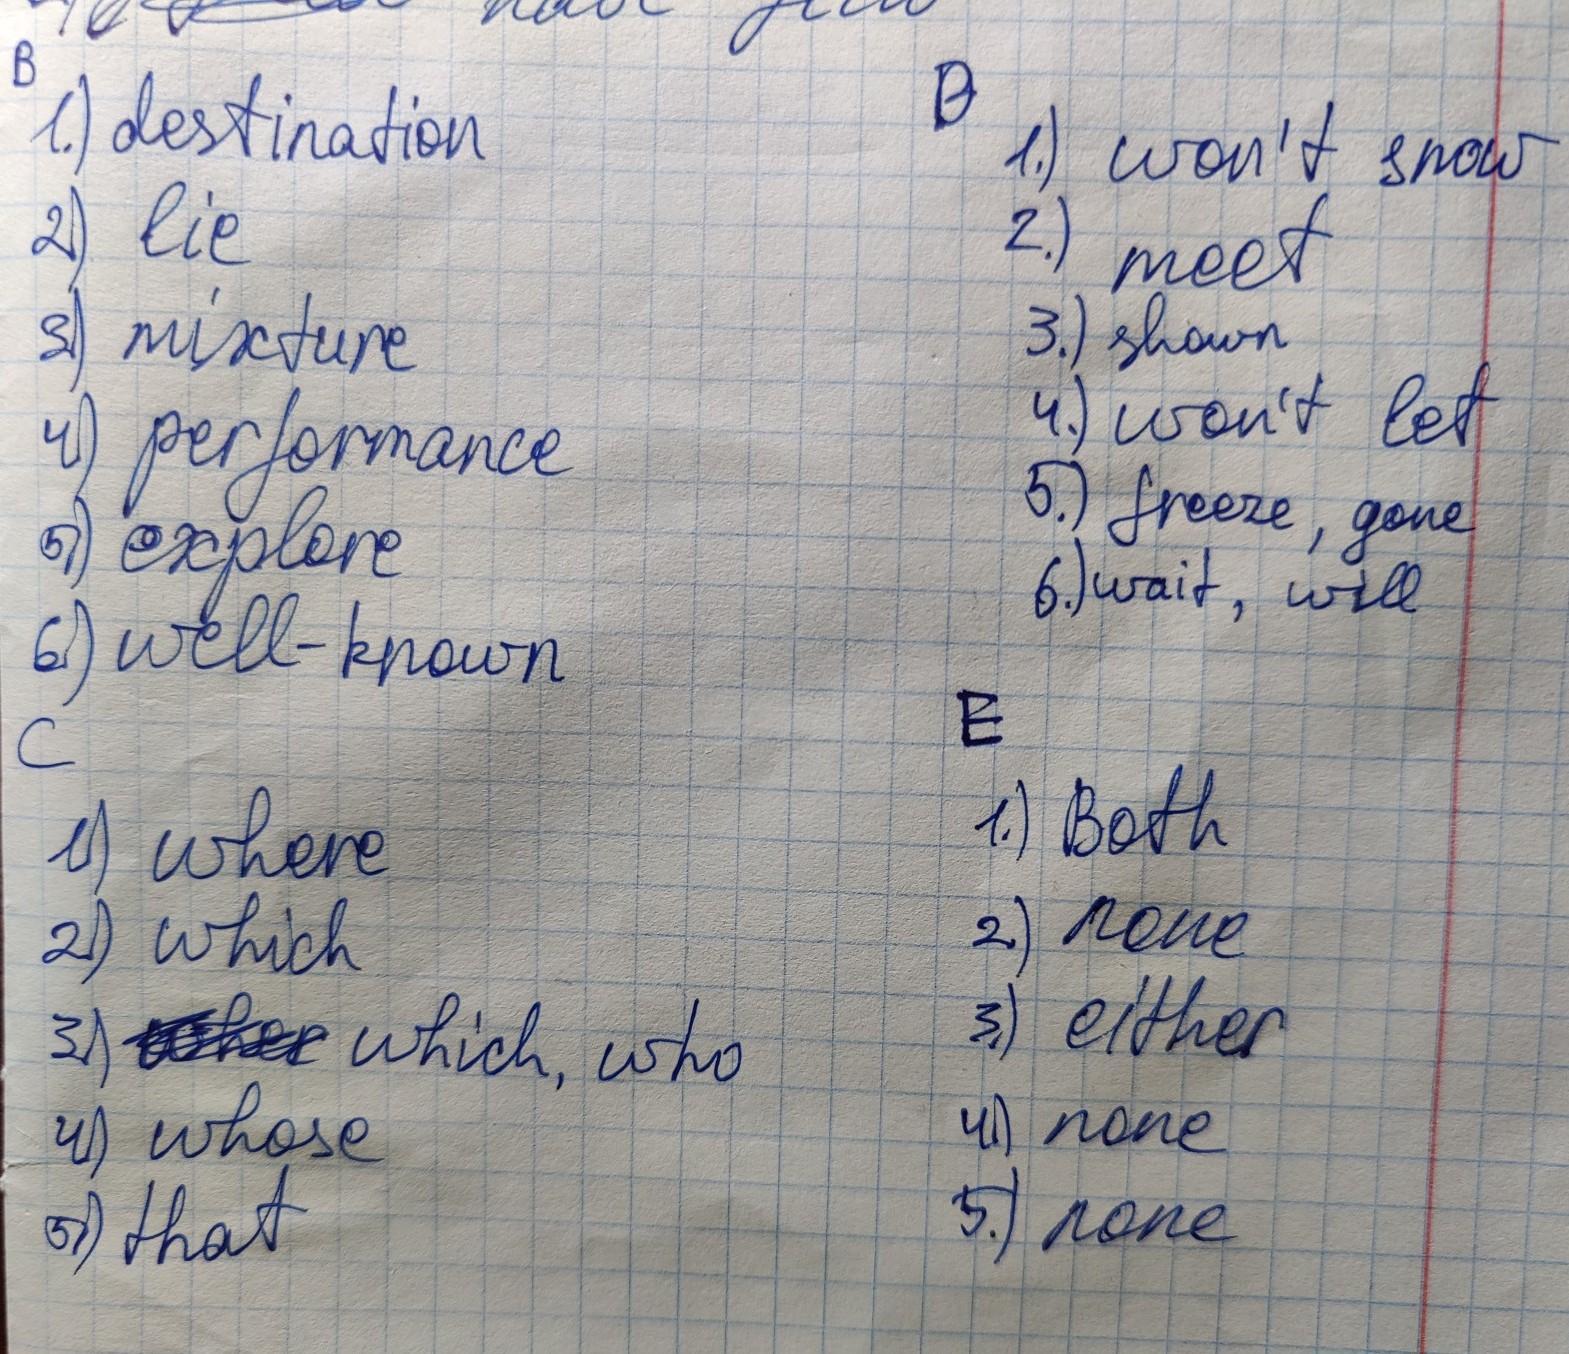 have
B
1.) destination
2) lie
3) mixture
4) performance
5) explore
6) well-known
C
1) where
2) which
3) which, who
4) whose
5) that
D
1.) won't snow
2.) meet
3.) shown
4.) won't let
5.) freeze, gone
6.) wait, will
E
1.) Both
2.) none
3.) either
4) none
5.) none